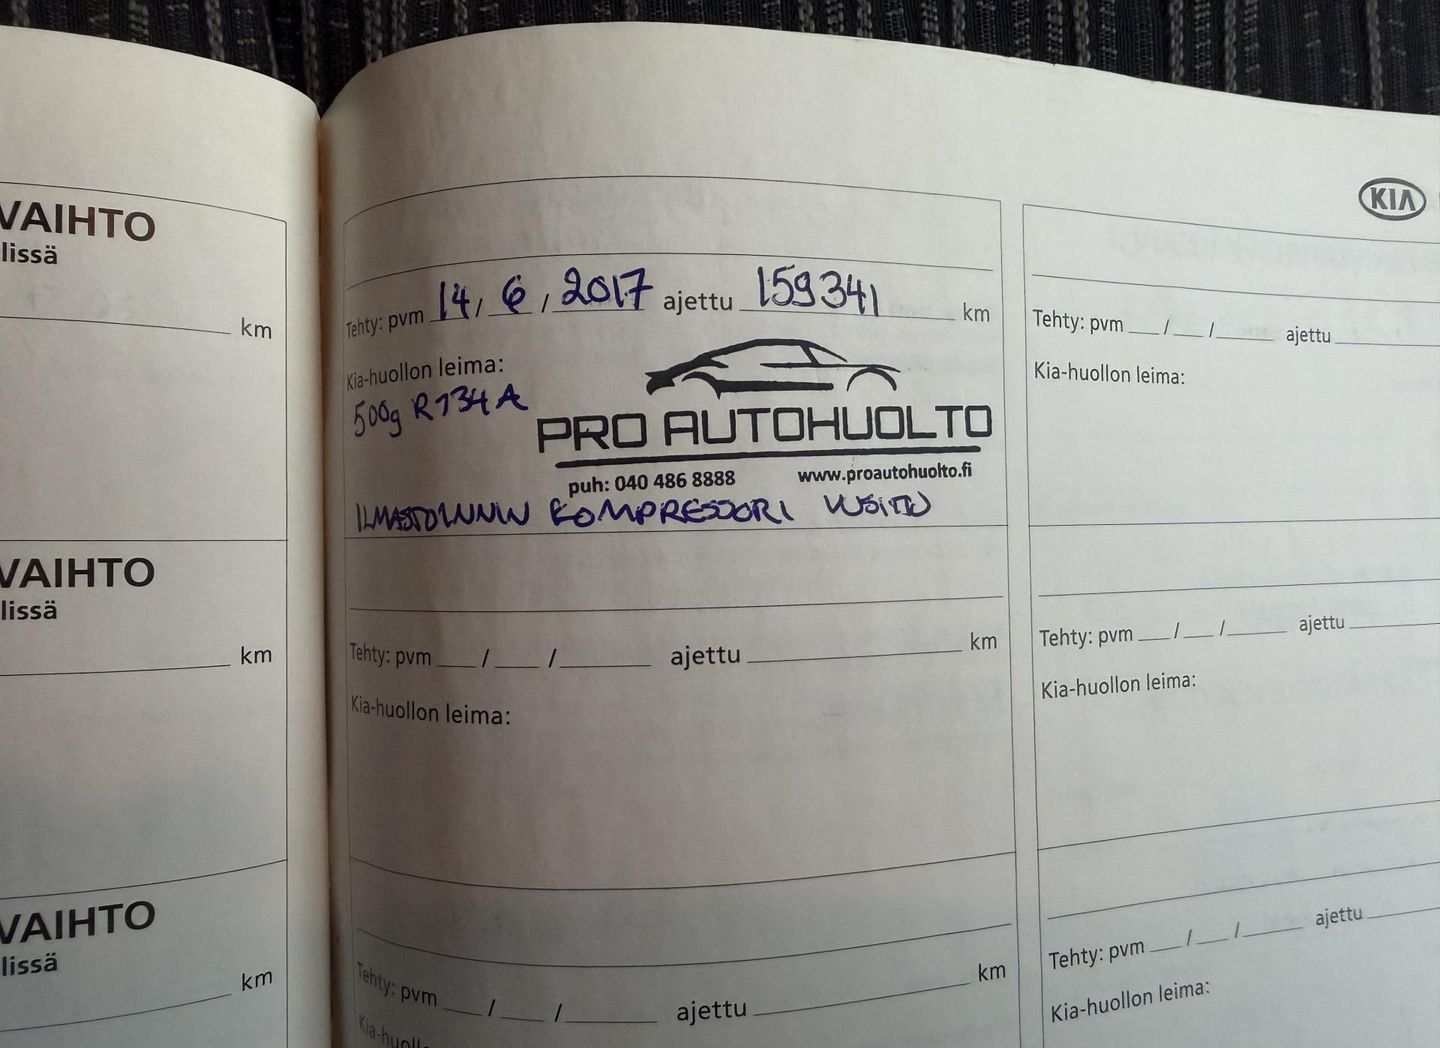 VAIHTO
lissä
km
VAIHTO
lissä
km
VAIHTO
lissä
km
KIA
Tehty: pvm 14 / 6 / 2017 ajettu 159341 km
Kia-huollon leima:
500g R134A
PRO AUTOHUOLTO
puh: 040 486 8888 www.proautohuolto.fi
ILMASTOINNIN KOMPRESSORI UUSITU
Tehty: pvm ___ / ___ / ______ ajettu ______ km
Kia-huollon leima:
Tehty: pvm ___ / ___ / ______ ajettu ______ km
Kia-huollon
Tehty: pvm ___ / ___ / ______ ajettu ______
Kia-huollon leima:
Tehty: pvm ___ / ___ / ______ ajettu ______
Kia-huollon leima:
Tehty: pvm ___ / ___ / ______ ajettu ______
Kia-huollon leima: